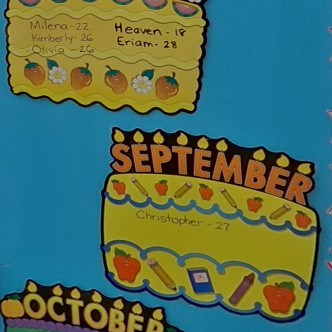 Milena - 22
Kimberly - 26
Olivia - 26
Heaven - 18
Eriam - 28
SEPTEMBER
Christopher - 27
OCTOBER